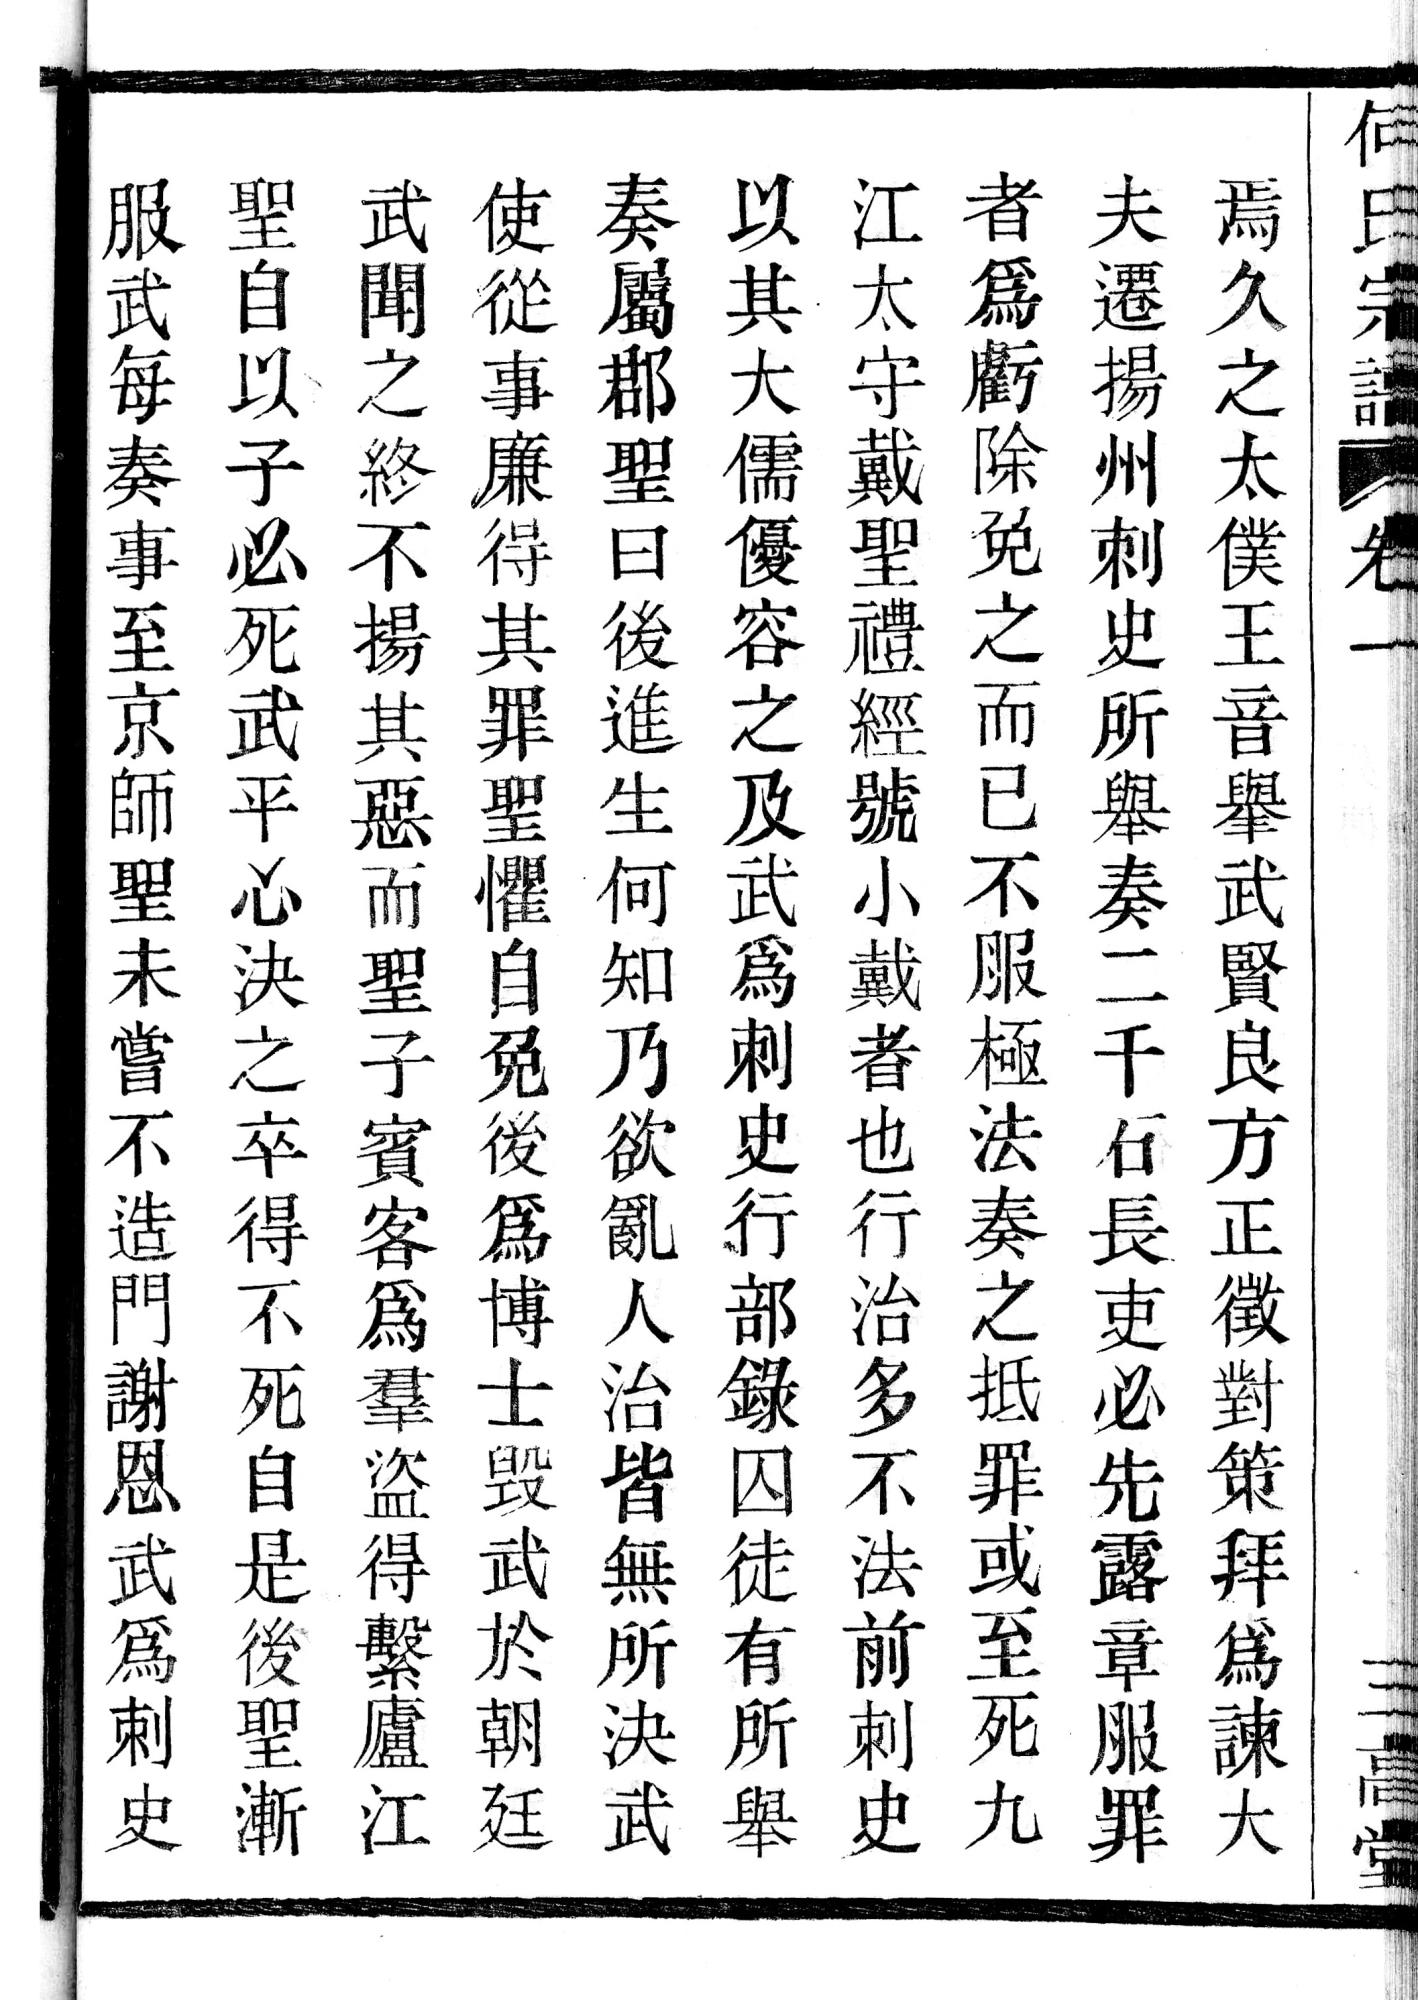 何氏宗譜 卷一 三高堂
焉久之太僕王音舉武賢良方正徵對策拜爲諫大
夫遷揚州刺史所舉奏二千石長吏必先露章服罪
者爲虧除免之而已不服極法奏之抵罪或至死九
江太守戴聖禮經號小戴者也行治多不法前刺史
以其大儒優容之及武爲刺史行部錄囚徒有所舉
奏屬郡聖曰後進生何知乃欲亂人治皆無所決武
使從事廉得其罪聖懼自免後爲博士毀武於朝廷
武聞之終不揚其惡而聖子賓客爲羣盜得繫廬江
聖自以子必死武平心決之卒得不死自是後聖漸
服武每奏事至京師聖未嘗不造門謝恩武爲刺史